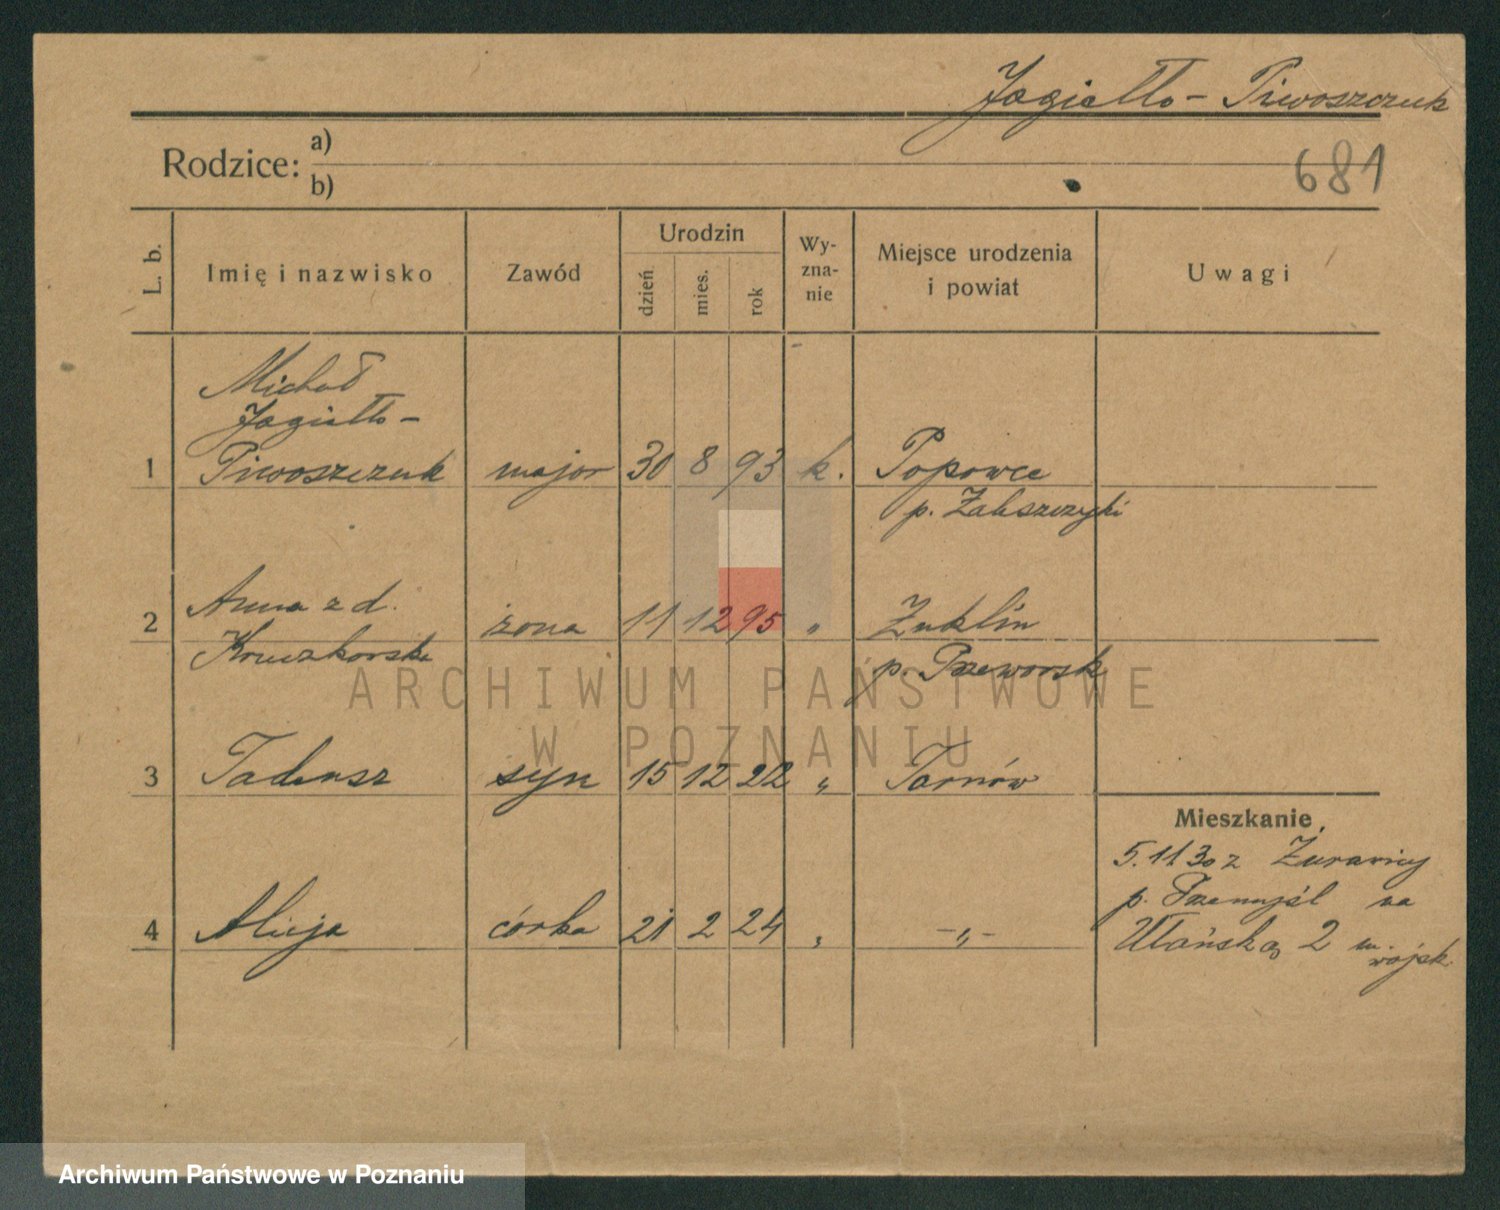 Jagiełło - Piwoszczuk
Rodzice: a)
b)
681
L. b. Imię i nazwisko Zawód Urodzin dzień mies. rok Wy-zna-nie Miejsce urodzenia i powiat Uwagi
Michał
Jagiełło -
1 Piwoszczuk major 30 8 93 k. Popowce
p. Zaleszczyki
Anna z d.
2 żona 11 12 95 „ Żuklin
p. Przeworsk
ARCHIWUM PAŃSTWOWE
W POZNANIU
3 Tadeusz syn 15 12 22 „ Tarnów
Mieszkanie
5.11 30 z Żurawicy
p. Przemyśl na
4 Alicja córka 21 2 24 „ -„- Ułańską 2 m.
wojsk.
Archiwum Państwowe w Poznaniu